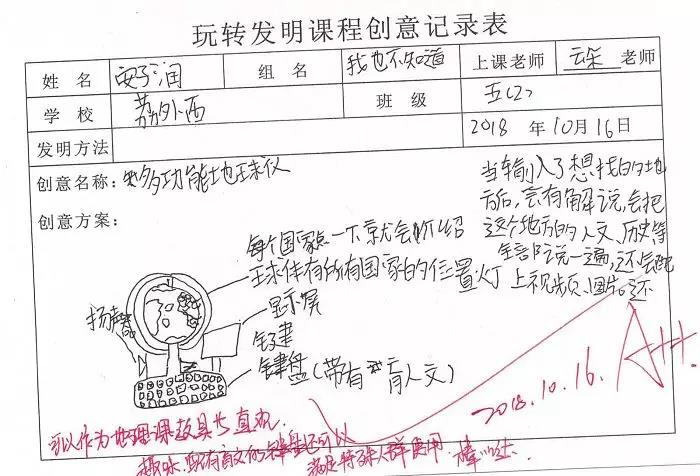 玩转发明课程创意记录表
姓 名 润 组 名 我也不知道 上课老师 云朵 老师
学 校 荔外西 班 级 五(2)
发明方法 2018 年10月16日
创意名称:多功能地球仪
创意方案:
当输入了想找的地
方后,会有解说,会把
这个地方的人文、历史等
全部说一遍,还会配
上视频、图片。还
每个国家点一下就会介绍
球体有所有国家的位置灯
显示屏
扬声器
键盘(带有盲人文)
2018.10.16.
A++
可以作为地理课教具
直观
趣味
满足特殊人群使用